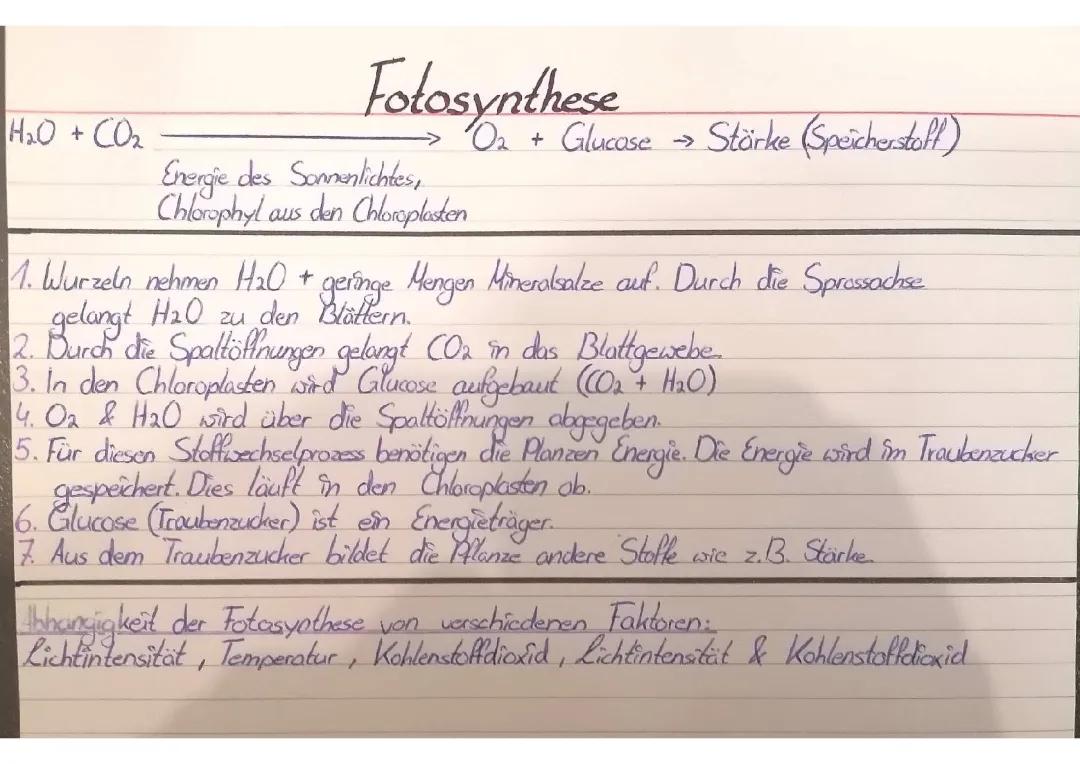 Fotosynthese
H2O + CO2 → O2 + Glucose → Stärke (Speicherstoff)
Energie des Sonnenlichtes,
Chlorophyl aus den Chloroplasten
1. Wurzeln nehmen H2O + geringe Mengen Mineralsalze auf. Durch die Sprossachse
gelangt H2O zu den Blättern.
2. Durch die Spaltöffnungen gelangt CO2 in das Blattgewebe.
3. In den Chloroplasten wird Glucose aufgebaut (CO2 + H2O)
4. O2 & H2O wird über die Spaltöffnungen abgegeben.
5. Für diesen Stoffwechselprozess benötigen die Planzen Energie. Die Energie wird im Traubenzucker
gespeichert. Dies läuft in den Chloroplasten ab.
6. Glucose (Traubenzucker) ist ein Energieträger.
7. Aus dem Traubenzucker bildet die Pflanze andere Stoffe wie z.B. Stärke.
Abhängigkeit der Fotosynthese von verschiedenen Faktoren:
Lichtintensität, Temperatur, Kohlenstoffdioxid, Lichtintensität & Kohlenstoffdioxid